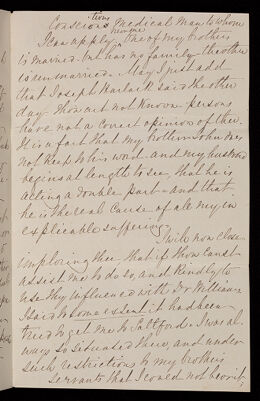 tious
Conscious Medical Man to whom
I can apply. One of my brothers
is married but has no family the other
is unmarried. May I just add
that Joseph said the other
day Thou art not known persons
have not a correct opinion of thee.
It is a fact that my brother John does
not keep to his word and my husband
begins at length to see, that he is
acting a double part - and that
he is the real Cause of all my in
explicable suffering. I will now close
imploring thee that if thou canst
assist me to do so, and kindly to
use thy influence with Dr Williams
I said to some essent it had been
tried to get me to I was al
ways so situated there, and under
such restrictions to my brothers
servants that I could not bear it,